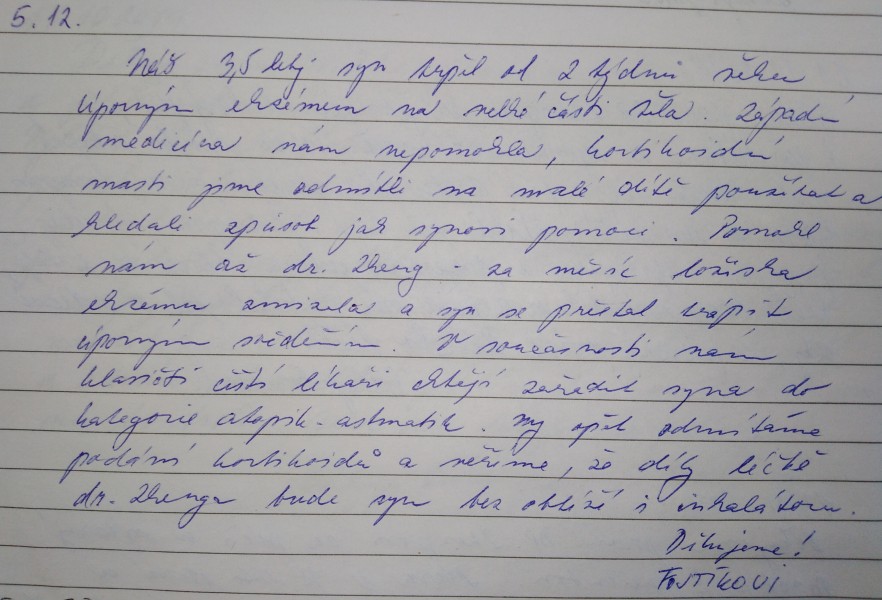 5.12.
Náš 3,5 letý syn trpěl od 2 týdnů věku
úporným ekzémem na velké části těla. Západní
medicína nám nepomohla, kortikoidní
masti jsme odmítli na malé dítě používat a
hledali způsob jak synovi pomoci. Pomohl
nám až dr. Zheng - za měsíc ložiska
ekzému zmizela a syn se přestal trápit
úporným svěděním. V současnosti nám
klasičtí čeští lékaři chtějí zařadit syna do
kategorie atopik-astmatik. My opět odmítáme
podání kortikoidů a věříme, že díky léčbě
dr. Zhenga bude syn bez obtíží i inhalátoru.
Děkujeme!